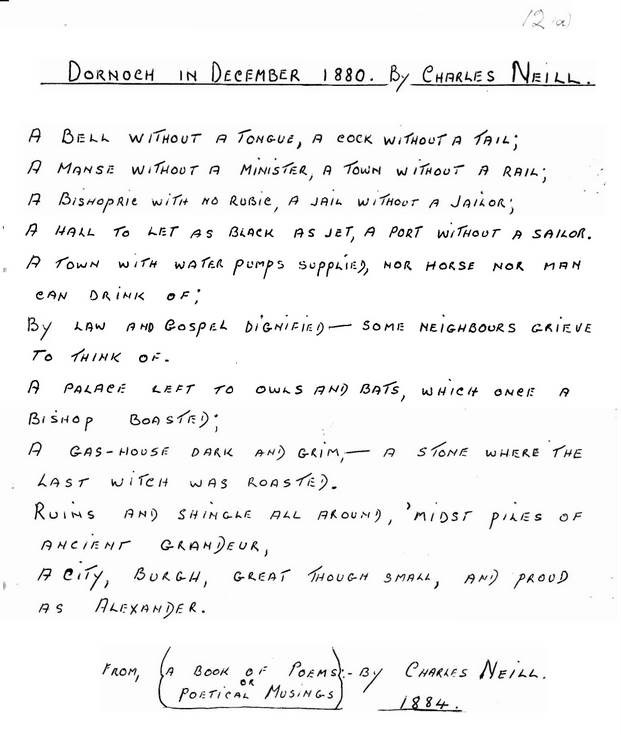 12(a)
DORNOCH IN DECEMBER 1880. By CHARLES NEILL.
A BELL WITHOUT A TONGUE, A COCK WITHOUT A TAIL;
A MANSE WITHOUT A MINISTER, A TOWN WITHOUT A RAIL;
A BISHOPRIC WITH NO RUBIC, A JAIL WITHOUT A JAILOR;
A HALL TO LET AS BLACK AS JET, A PORT WITHOUT A SAILOR.
A TOWN WITH WATER PUMPS SUPPLIED, NOR HORSE NOR MAN
CAN DRINK OF;
By LAW AND GOSPEL DIGNIFIED — SOME NEIGHBOURS GRIEVE
TO THINK OF.
A PALACE LEFT TO OWLS AND BATS, WHICH ONCE A
BISHOP BOASTED;
A GAS-HOUSE DARK AND GRIM, — A STONE WHERE THE
LAST WITCH WAS ROASTED.
RUINS AND SHINGLE ALL AROUND, 'MIDST PILES OF
ANCIENT GRANDEUR,
A CITY, BURGH, GREAT THOUGH SMALL, AND PROUD
AS ALEXANDER.
FROM, (A BOOK OF POEMS):- By CHARLES NEILL.
OR
POETICAL MUSINGS
1884.